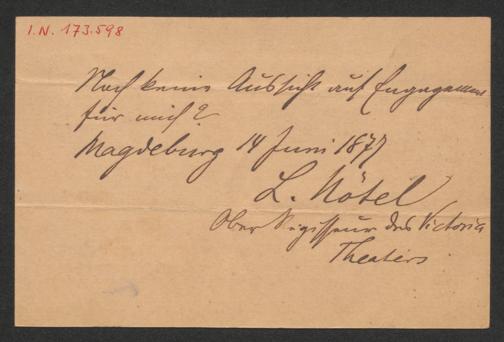 I.N. 173.598
Noch keine Aussicht auf Engagement
für mich?
Magdeburg 14 Juni 1877
L. Nötel
Ober Regisseur des Victoria
Theaters.